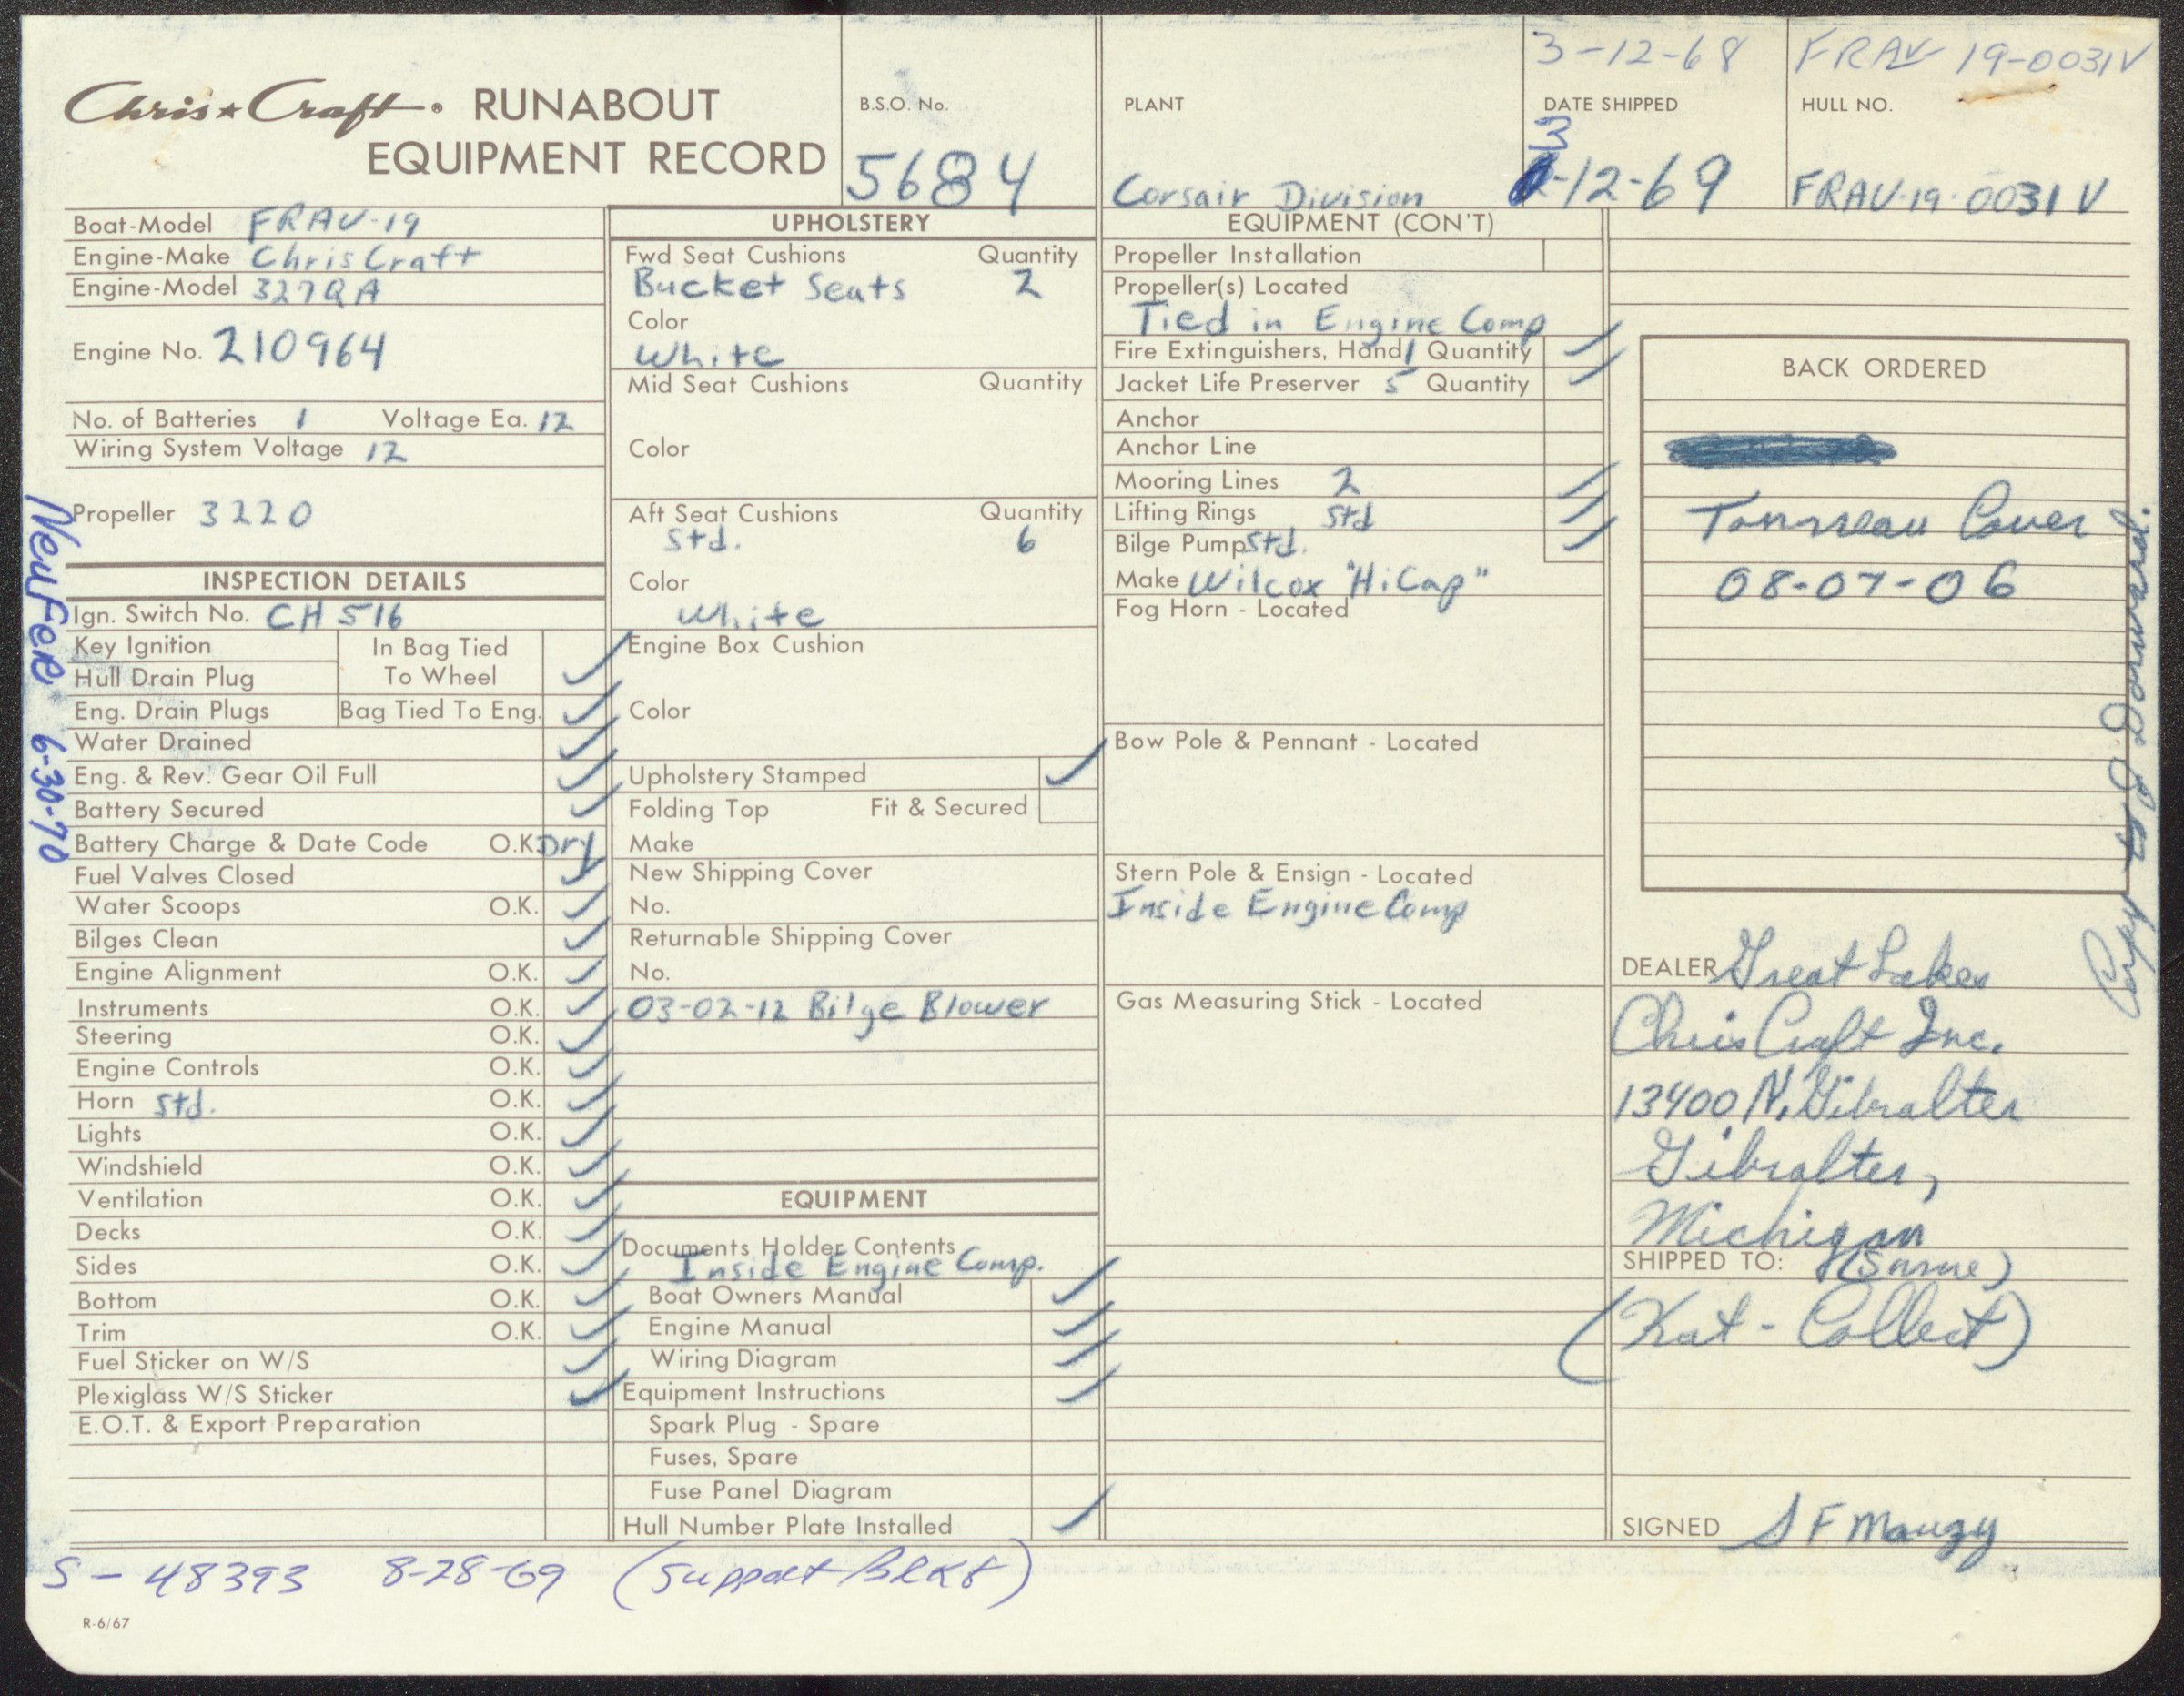 3-12-68 FRAV 19-0031V
Chris★Craft® RUNABOUT
EQUIPMENT RECORD
B.S.O. No.
5684
PLANT
Corsair Division
DATE SHIPPED
3-12-69
HULL NO.
FRAV-19-0031 V
Boat-Model FRAV-19
Engine-Make Chris Craft
Engine-Model 327QA
Engine No. 210964
No. of Batteries 1 Voltage Ea. 12
Wiring System Voltage 12
Propeller 3220
INSPECTION DETAILS
Ign. Switch No. CH 516
Key Ignition In Bag Tied
Hull Drain Plug To Wheel ✓
Eng. Drain Plugs Bag Tied To Eng. ✓
Water Drained ✓
Eng. & Rev. Gear Oil Full ✓
Battery Secured ✓
Battery Charge & Date Code O.K. Dry
Fuel Valves Closed ✓
Water Scoops O.K. ✓
Bilges Clean ✓
Engine Alignment O.K. ✓
Instruments O.K. ✓
Steering O.K. ✓
Engine Controls O.K. ✓
Horn Std. O.K. ✓
Lights O.K. ✓
Windshield O.K. ✓
Ventilation O.K. ✓
Decks O.K. ✓
Sides O.K. ✓
Bottom O.K. ✓
Trim O.K. ✓
Fuel Sticker on W/S ✓
Plexiglass W/S Sticker ✓
E.O.T. & Export Preparation
UPHOLSTERY
Fwd Seat Cushions Quantity
Bucket Seats 2
Color
White
Mid Seat Cushions Quantity
Color
Aft Seat Cushions Quantity
Std. 6
Color
White
Engine Box Cushion
Color
Upholstery Stamped ✓
Folding Top Fit & Secured
Make
New Shipping Cover
No.
Returnable Shipping Cover
No.
03-02-12 Bilge Blower
EQUIPMENT
Documents Holder Contents
Inside Engine Comp.
Boat Owners Manual ✓
Engine Manual ✓
Wiring Diagram ✓
Equipment Instructions ✓
Spark Plug - Spare
Fuses, Spare
Fuse Panel Diagram
Hull Number Plate Installed ✓
EQUIPMENT (CON'T)
Propeller Installation
Propeller(s) Located
Tied in Engine Comp
Fire Extinguishers, Hand 1 Quantity ✓
Jacket Life Preserver 5 Quantity ✓
Anchor
Anchor Line
Mooring Lines 2 ✓
Lifting Rings Std ✓
Bilge Pump Std. ✓
Make Wilcox "HiCap"
Fog Horn - Located
Bow Pole & Pennant - Located
Stern Pole & Ensign - Located
Inside Engine Comp
Gas Measuring Stick - Located
BACK ORDERED
Tonneau Cover
08-07-06
DEALER Great Lakes
Chris Craft Inc.
13400 N. Gibralter
Gibralter,
Michigan
SHIPPED TO: (Same)
(Kat - Collect)
SIGNED S F Mauzy
Neufer 6-30-70
S - 48393 8-28-69 (Support Blkt)
R-6/67